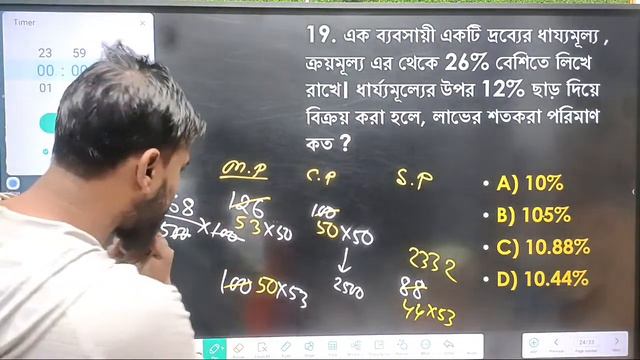 Timer
23 59
00 : 00
01
19. এক ব্যবসায়ী একটি দ্রব্যের ধায্যমূল্য ,
ক্রয়মূল্য এর থেকে 26% বেশিতে লিখে
রাখে। ধার্য্যমূল্যের উপর 12% ছাড় দিয়ে
বিক্রয় করা হলে, লাভের শতকরা পরিমাণ
কত ?
M.P C.P S.P
126 100
68 × 100 53×50 50×50
2332
100 50×53 2500 88
44×53
• A) 10%
• B) 105%
• C) 10.88%
• D) 10.44%
24/33